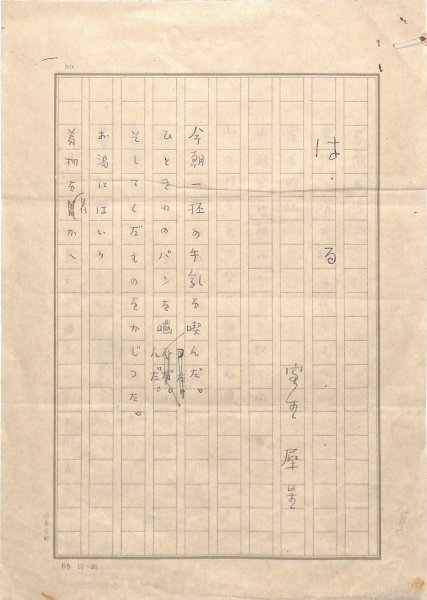 NO
は る
室生犀星
今朝一杯の牛乳を喫んだ。
ひときれのパンを嚥んだ。
そしてくだものをかじつた。
お湯にはいり
着物を着かへ
B5 10-20